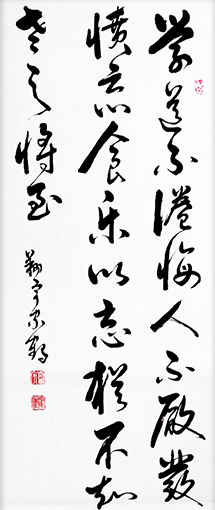 學道不倦誨人不厭發
憤忘食樂以忘憂不知
老之將至